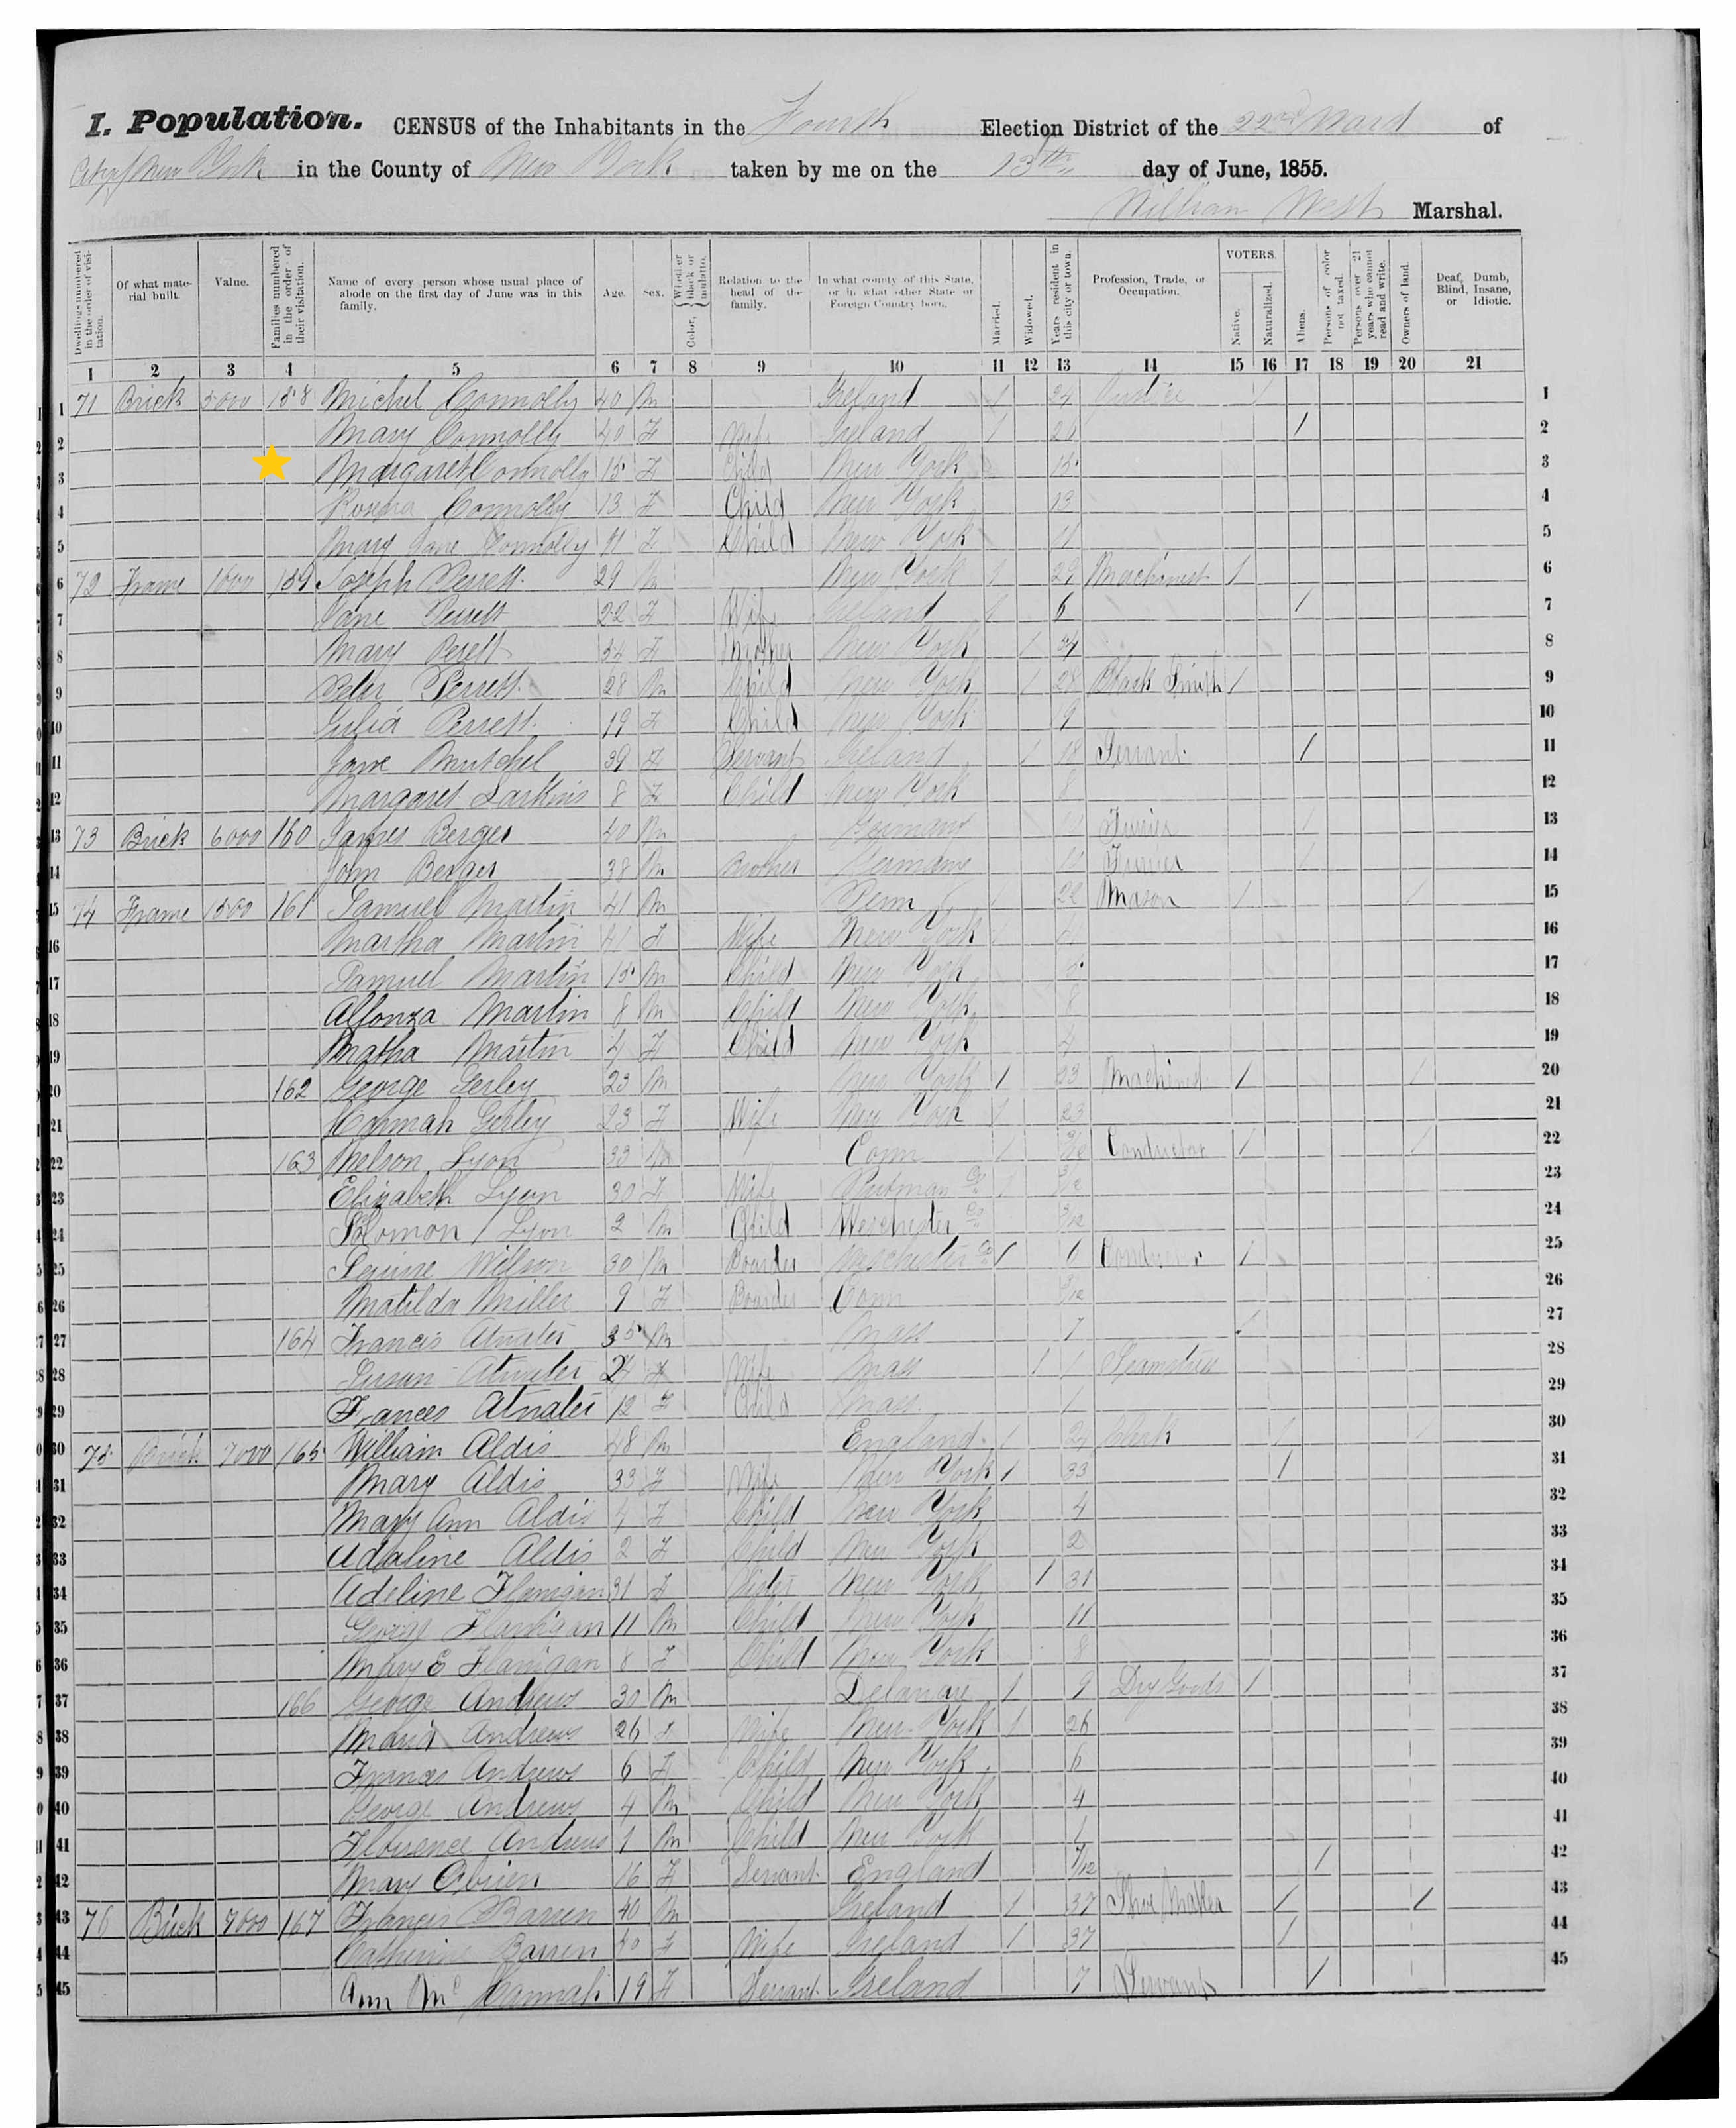 I. Population. CENSUS of the Inhabitants in the Fourth Election District of the 22nd Ward of
City of New York in the County of New York taken by me on the 13th day of June, 1855.
William West Marshal.
Dwellings numbered in the order of visitation.
Of what material built.
Value.
Families numbered in the order of their visitation.
Name of every person whose usual place of abode on the first day of June was in this family.
Age.
Sex.
Color, Whether black or mulatto.
Relation to the head of the family.
In what county of this State, or in what other State or Foreign Country born.
Married.
Widowed.
Years resident in this city or town.
Profession, Trade, or Occupation.
VOTERS.
Native.
Naturalized.
Aliens.
Persons of color not taxed.
Persons over 21 years who cannot read and write.
Owners of land.
Deaf, Dumb, Blind, Insane, or Idiotic.
1 2 3 4 5 6 7 8 9 10 11 12 13 14 15 16 17 18 19 20 21
1 71 Brick 5000 158 Michel Connolly 40 M Ireland 1 1 1
2 Mary Connolly 40 F Wife Ireland 1 1 2
3 Margaret Connolly 15 F Child New York 15 3
4 Connolly 13 F Child New York 13 4
5 Mary Jane Connolly 11 F Child New York 11 5
6 72 Frame 1000 159 Joseph Perrett 29 M New York 1 29 Machonest 1 6
7 Jane Perrett 22 F Wife Ireland 1 6 1 7
8 Mary Perett F Mother New York 1 8
9 Peter Perrett 28 M Child New York 1 28 Black Smith 1 9
10 Julia Perrett 19 F Child New York 19 10
11 Jane Mutchel 39 F Servant Ireland 1 18 Servant 1 11
12 Margaret Larkins 8 F Child New York 8 12
13 73 Brick 6000 160 James Berger 40 M Germany Furrier 1 13
14 John Berger 38 M Brother Germany 10 Furrier 1 14
15 74 Frame 1500 161 Samuel Martin 41 M Penn Mason 1 1 15
16 Martha Martin 41 F Wife New York 16
17 Samuel Martin 15 M Child New York 17
18 Alfonza Martin 8 M Child New York 8 18
19 Matha Martin 4 F Child New York 4 19
20 162 George Gerley 23 M New York 1 23 Machinest 1 1 20
21 Hannah Gerley 23 F Wife New York 1 23 21
22 163 Nelson Lyon 33 M Conn 1 Conductor 1 1 22
23 Elizabeth Lyon 30 F Wife Putman Co 1 23
24 Solomon Lyon 2 M Child Weschester Co 24
25 Wilson 30 M Boarder Weschester Co 1 1 25
26 Matilda Miller 9 F Boarder Conn 26
27 164 Francis Atwater 35 M Mass 1 27
28 Susan Atwater F Wife Mass 1 1 Seamstress 28
29 Frances Atwater 12 F Child Mass 1 29
30 75 Brick 7000 165 William Aldis 48 M England 1 Clerk 1 1 30
31 Mary Aldis 33 F Wife New York 1 33 1 31
32 Mary Ann Aldis 4 F Child New York 4 32
33 Adaline Aldis 2 F Child New York 2 33
34 Adeline Flanigan 31 F Sister New York 1 31 34
35 Flanigan 11 M Child New York 11 35
36 Mary E Flanigan 8 F Child New York 8 36
37 166 George Andrews 30 M Delaware 1 9 Dry Goods 1 37
38 Maria Andrews 26 F Wife New York 1 26 38
39 Frances Andrews 6 F Child New York 6 39
40 George Andrews 4 M Child New York 4 40
41 Florence Andrews 1 M Child New York 1 41
42 Mary Obrien 16 F Servant England 7/12 1 42
43 76 Brick 167 Francis Barren 40 M Ireland 1 37 Shoe Maker 1 1 43
44 Catherine Barren 40 F Wife Ireland 1 37 1 44
45 Ann Mc Hannah 19 F Servant Ireland 7 Servant 1 45